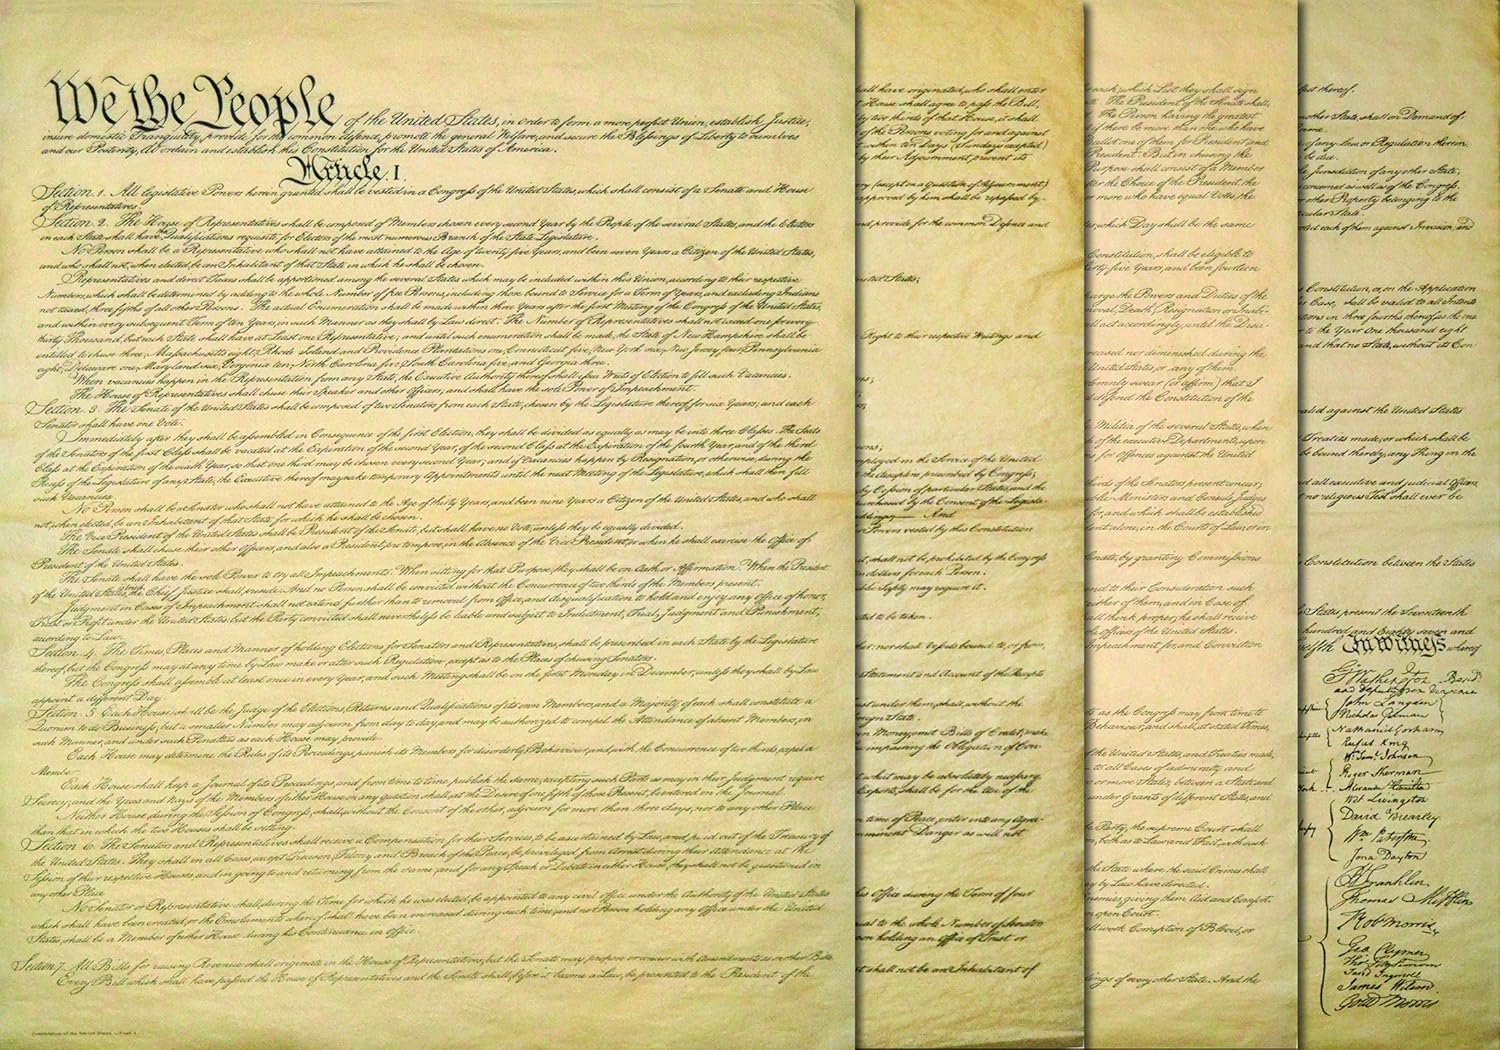 We the People of the United States, in Order to form a more perfect Union, establish Justice,
insure domestic Tranquility, provide for the common defence, promote the general Welfare, and secure the Blessings of Liberty to ourselves
and our Posterity, do ordain and establish this Constitution for the United States of America.
Article. I.
Section. 1. All legislative Powers herein granted shall be vested in a Congress of the United States, which shall consist of a Senate and House
of Representatives.
Section. 2. The House of Representatives shall be composed of Members chosen every second Year by the People of the several States, and the Electors
in each State shall have the Qualifications requisite for Electors of the most numerous Branch of the State Legislature.
No Person shall be a Representative who shall not have attained to the Age of twenty five Years, and been seven Years a Citizen of the United States,
and who shall not, when elected, be an Inhabitant of that State in which he shall be chosen.
Representatives and direct Taxes shall be apportioned among the several States which may be included within this Union, according to their respective
Numbers, which shall be determined by adding to the whole Number of free Persons, including those bound to Service for a Term of Years, and excluding Indians
not taxed, three fifths of all other Persons. The actual Enumeration shall be made within three Years after the first Meeting of the Congress of the United States,
and within every subsequent Term of ten Years, in such Manner as they shall by Law direct. The Number of Representatives shall not exceed one for every
thirty Thousand, but each State shall have at Least one Representative; and until such enumeration shall be made, the State of New Hampshire shall be
entitled to chuse three, Massachusetts eight, Rhode Island and Providence Plantations one, Connecticut five, New York six, New Jersey four, Pennsylvania
eight, Delaware one, Maryland six, Virginia ten, North Carolina five, South Carolina five, and Georgia three.
When vacancies happen in the Representation from any State, the Executive Authority thereof shall issue Writs of Election to fill such Vacancies.
The House of Representatives shall chuse their Speaker and other Officers; and shall have the sole Power of Impeachment.
Section. 3. The Senate of the United States shall be composed of two Senators from each State, chosen by the Legislature thereof, for six Years; and each
Senator shall have one Vote.
Immediately after they shall be assembled in Consequence of the first Election, they shall be divided as equally as may be into three Classes. The Seats
of the Senators of the first Class shall be vacated at the Expiration of the second Year, of the second Class at the Expiration of the fourth Year, and of the third
Class at the Expiration of the sixth Year, so that one third may be chosen every second Year; and if Vacancies happen by Resignation, or otherwise, during the
Recess of the Legislature of any State, the Executive thereof may make temporary Appointments until the next Meeting of the Legislature, which shall then fill
such Vacancies.
No Person shall be a Senator who shall not have attained to the Age of thirty Years, and been nine Years a Citizen of the United States, and who shall
not, when elected, be an Inhabitant of that State for which he shall be chosen.
The Vice President of the United States shall be President of the Senate, but shall have no Vote, unless they be equally divided.
The Senate shall chuse their other Officers, and also a President pro tempore, in the Absence of the Vice President, or when he shall exercise the Office of
President of the United States.
The Senate shall have the sole Power to try all Impeachments. When sitting for that Purpose, they shall be on Oath or Affirmation. When the President
of the United States is tried, the Chief Justice shall preside: And no Person shall be convicted without the Concurrence of two thirds of the Members present.
Judgment in Cases of Impeachment shall not extend further than to removal from Office, and disqualification to hold and enjoy any Office of honor,
Trust or Profit under the United States: but the Party convicted shall nevertheless be liable and subject to Indictment, Trial, Judgment and Punishment,
according to Law.
Section. 4. The Times, Places and Manner of holding Elections for Senators and Representatives, shall be prescribed in each State by the Legislature
thereof; but the Congress may at any time by Law make or alter such Regulations, except as to the Places of chusing Senators.
The Congress shall assemble at least once in every Year, and such Meeting shall be on the first Monday in December, unless they shall by Law
appoint a different Day.
Section. 5. Each House shall be the Judge of the Elections, Returns and Qualifications of its own Members, and a Majority of each shall constitute a
Quorum to do Business; but a smaller Number may adjourn from day to day, and may be authorized to compel the Attendance of absent Members, in
such Manner, and under such Penalties as each House may provide.
Each House may determine the Rules of its Proceedings, punish its Members for disorderly Behaviour, and, with the Concurrence of two thirds, expel a
Member.
Each House shall keep a Journal of its Proceedings, and from time to time publish the same, excepting such Parts as may in their Judgment require
Secrecy; and the Yeas and Nays of the Members of either House on any question shall, at the Desire of one fifth of those Present, be entered on the Journal.
Neither House, during the Session of Congress, shall, without the Consent of the other, adjourn for more than three days, nor to any other Place
than that in which the two Houses shall be sitting.
Section. 6. The Senators and Representatives shall receive a Compensation for their Services, to be ascertained by Law, and paid out of the Treasury of
the United States. They shall in all Cases, except Treason, Felony and Breach of the Peace, be privileged from Arrest during their Attendance at the
Session of their respective Houses, and in going to and returning from the same; and for any Speech or Debate in either House, they shall not be questioned in
any other Place.
No Senator or Representative shall, during the Time for which he was elected, be appointed to any civil Office under the Authority of the United States,
which shall have been created, or the Emoluments whereof shall have been encreased during such time; and no Person holding any Office under the United
States, shall be a Member of either House during his Continuance in Office.
Section. 7. All Bills for raising Revenue shall originate in the House of Representatives; but the Senate may propose or concur with Amendments as on other Bills.
Every Bill which shall have passed the House of Representatives and the Senate, shall, before it become a Law, be presented to the President of the
Constitution of the United States — Page 1
all have originated, who shall enter
House shall agree to pass the Bill,
by two thirds of that House, it shall
of the Persons voting for and against
within ten Days (Sundays excepted)
by their Adjournment prevent its
(except on a question of Adjournment)
approved by him, shall be repassed by
and provide for the common Defence and
States;
Right to their respective Writings and
employed in the Service of the United
the discipline prescribed by Congress;
by Cession of particular States, and the
purchased by the Consent of the Legisla-
And
Powers vested by this Constitution
shall not be prohibited by the Congress
dollars for each Person.
Safety may require it.
to be taken.
nor shall Vessels bound to, or from,
Statement and Account of the Receipts
under them, shall, without the
foreign State.
Money; emit Bills of Credit; make
impairing the Obligation of Con-
what may be absolutely necessary
Exports, shall be for the Use of the
time of Peace, enter into any Agree-
imminent Danger as will not
his Office during the Term of four
equal to the whole Number of Senators
holding an Office of Trust or
shall not be an Inhabitant of
each; which List they shall sign
The President of the Senate shall,
The Person having the greatest
if there be more than one who have
Ballot one of them for President; and
President. But in chusing the
Purpose shall consist of a Member
the Choice of the President, the
or more who have equal Votes, the
which Day shall be the same
Constitution, shall be eligible to
thirty five Years, and been fourteen
discharge the Powers and Duties of the
Removal, Death, Resignation or Inabi-
shall act accordingly, until the Disa-
encreased nor diminished during the
United States, or any of them.
solemnly swear (or affirm) that I
defend the Constitution of the
Militia of the several States, when
of the executive Departments, upon
for Offences against the United
thirds of the Senators present concur;
public Ministers and Consuls, Judges
for, and which shall be established
alone, in the Courts of Law, or in
Senate, by granting Commissions
and to their Consideration such
either of them, and in Case of
shall think proper; he shall receive
the Officers of the United States.
Impeachment for, and Conviction
as the Congress may from time to
Behaviour, and shall, at stated Times,
the United States, and Treaties made,
to all Cases of admiralty and
or more States; between a State and
under Grants of different States, and
be Party, the supreme Court shall
both as to Law and Fact, with such
the State where the said Crimes shall
by Law have directed.
Enemies, giving them Aid and Comfort.
open Court.
shall work Corruption of Blood, or
of every other State. And the
thereof.
another State, shall on Demand of
of any Law or Regulation therein,
be due.
Jurisdiction of any other State;
concerned as well as of the Congress.
or other Property belonging to the
State.
protect each of them against Invasion; and
Constitution, or, on the Application
Case, shall be valid to all Intents
in three fourths thereof, as the one
to the Year One thousand eight
and that no State, without its Con-
valid against the United States
Treaties made, or which shall be
be bound thereby, any Thing in the
all executive and judicial Officers,
no religious Test shall ever be
Constitution between the States
States present the Seventeenth
hundred and Eighty seven and
Twelfth In Witness whereof
Go: Washington Presidt
and deputy from Virginia
John Langdon
Nicholas Gilman
Nathaniel Gorham
Rufus King
Wm Saml Johnson
Roger Sherman
Alexander Hamilton
Wil: Livingston
David Brearley
Wm Paterson
Jona: Dayton
B Franklin
Thomas Mifflin
Robt Morris
Geo. Clymer
Thos FitzSimons
Jared Ingersoll
James Wilson
Gouv Morris